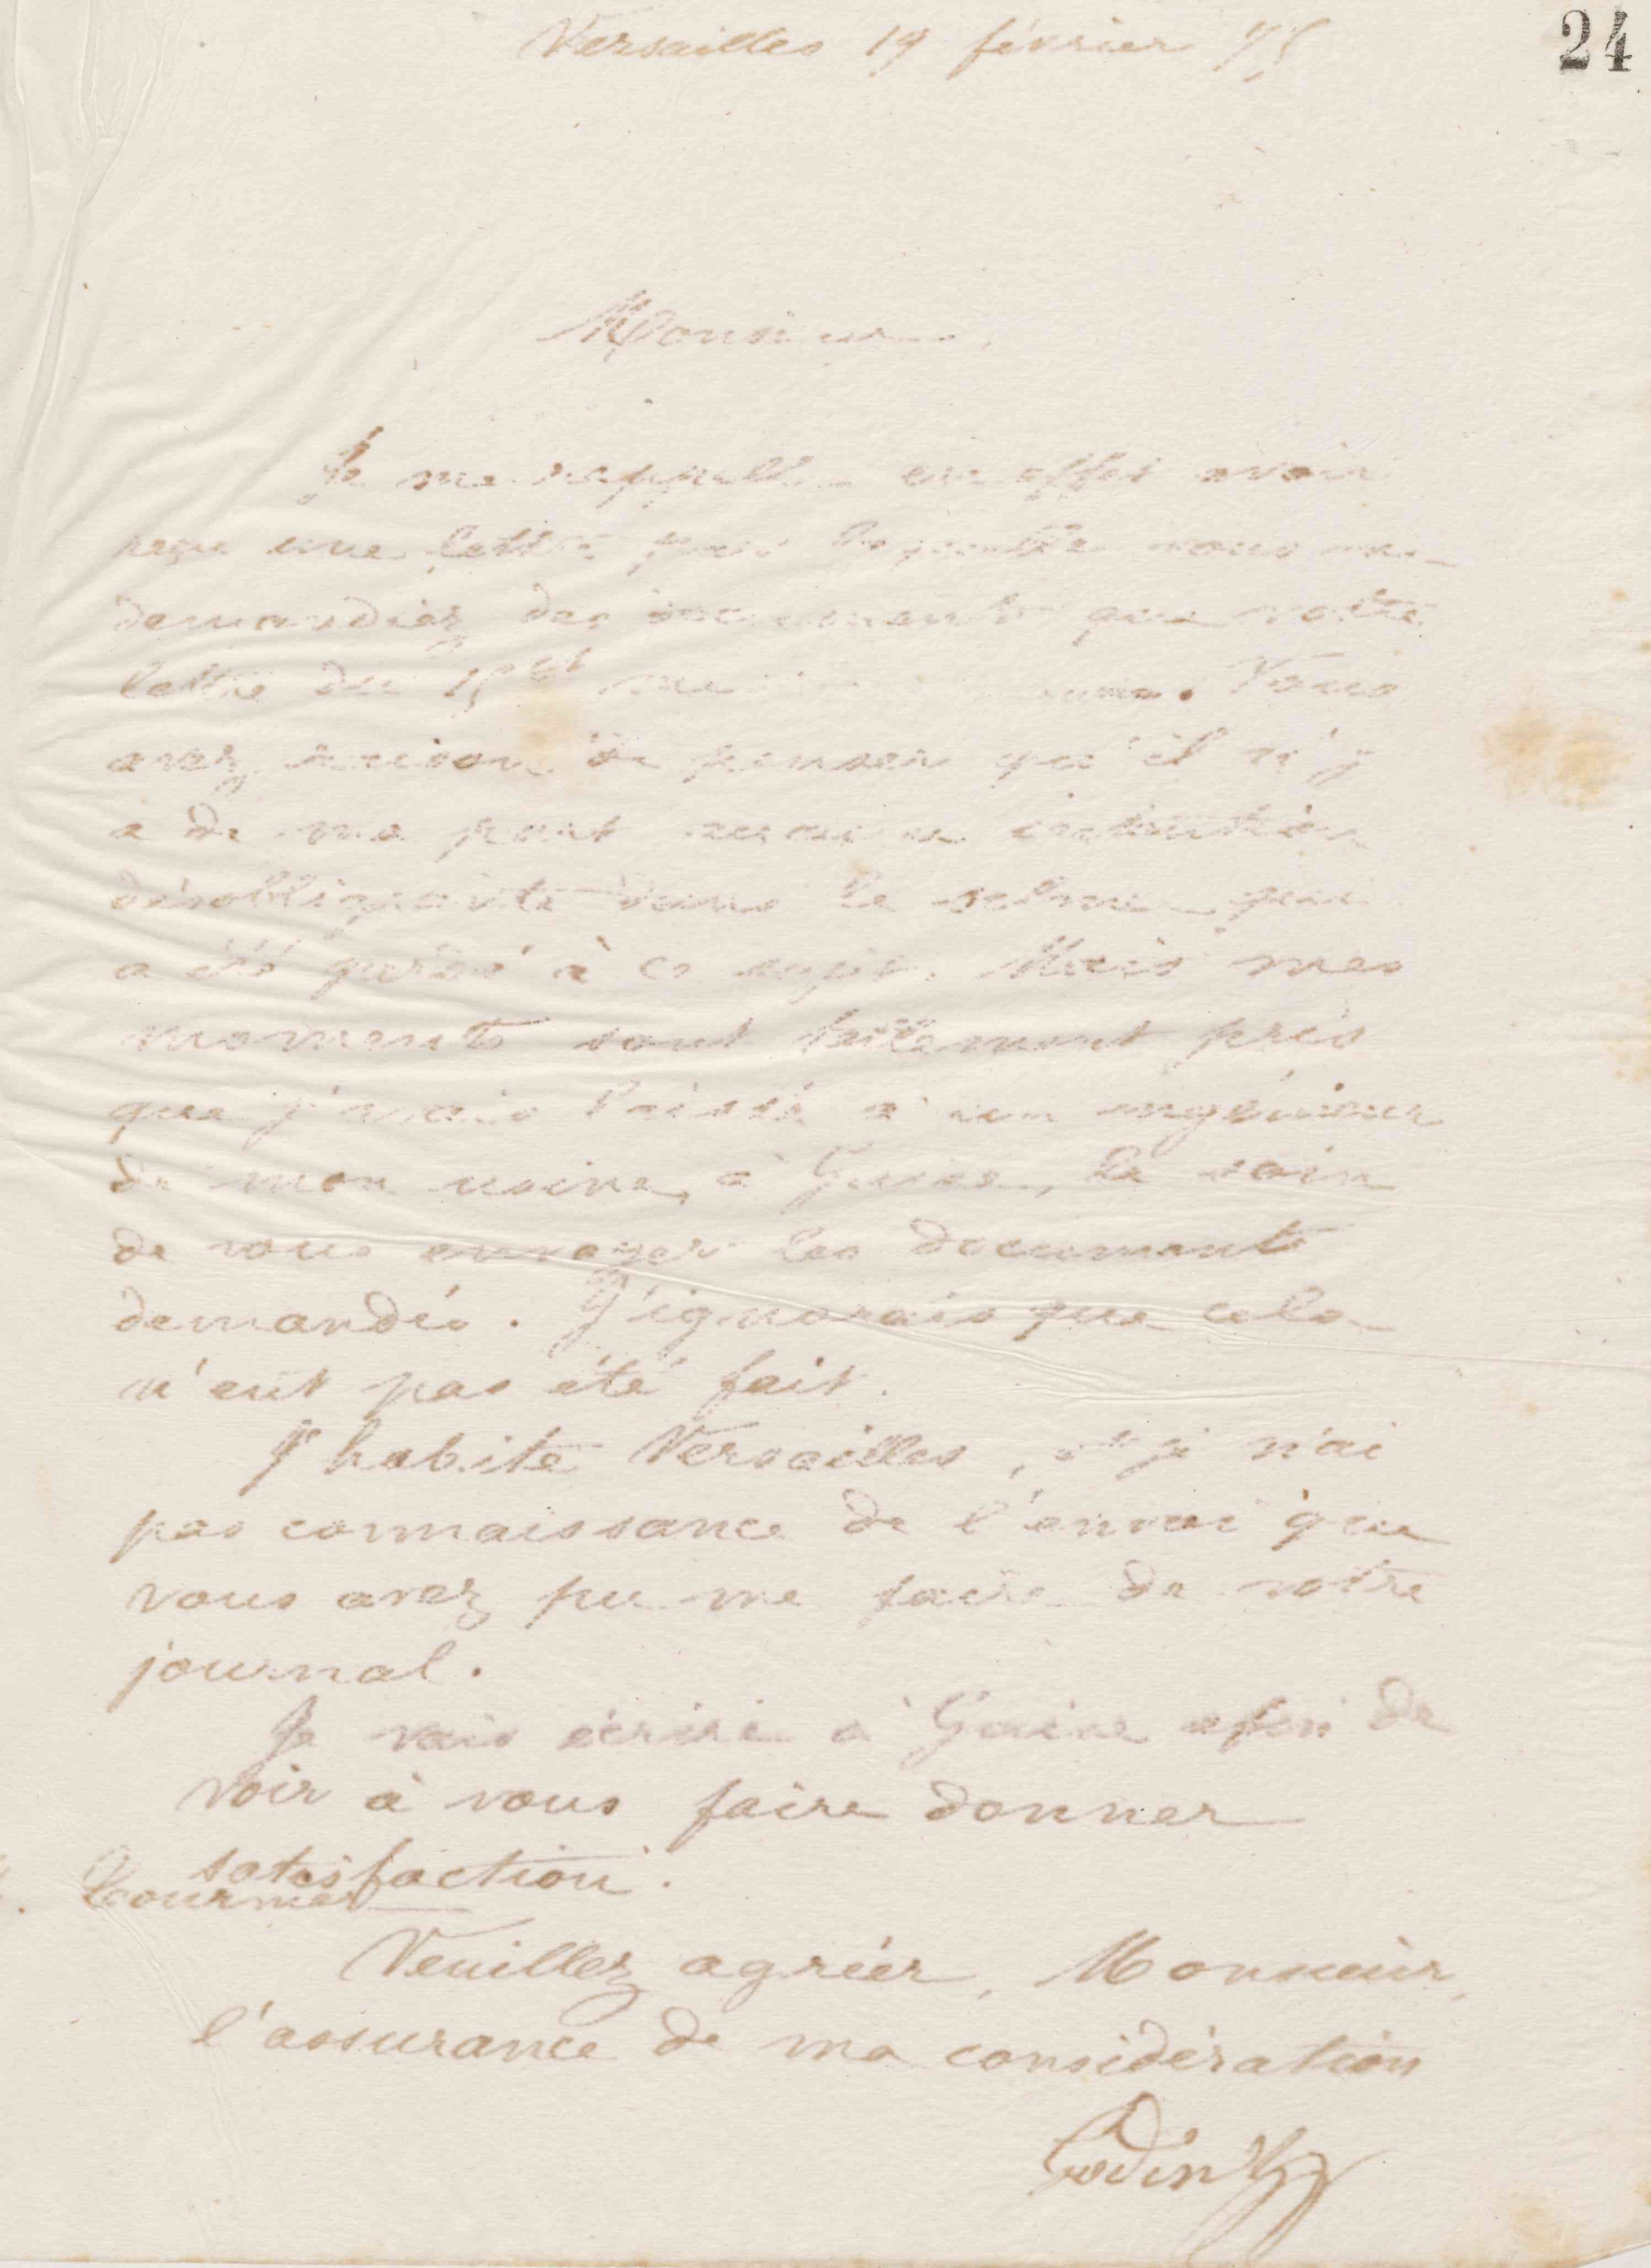 24
Versailles 19 février 75
Monsieur,
Je me rappelle en effet avoir
reçu une lettre par laquelle vous me
demandiez des documents que votre
lettre du 15 ct me. Vous
avez raison de penser qu'il n'y
a de ma part aucune intention
désobligeante dans le silence qui
a été gardé à ce sujet. Mais mes
moments sont tellement pris
que j'avais laissé à un ingénieur
de mon usine, à Guise, le soin
de vous envoyer les documents
demandés. J'ignorais que cela
n'eut pas été fait.
J'habite Versailles, et je n'ai
pas connaissance de l'envoi que
vous avez pu me faire de votre
journal.
Je vais écrire à Guise afin de
voir à vous faire donner
satisfaction.
Veuillez agréer, Monsieur,
l'assurance de ma considération
Godin